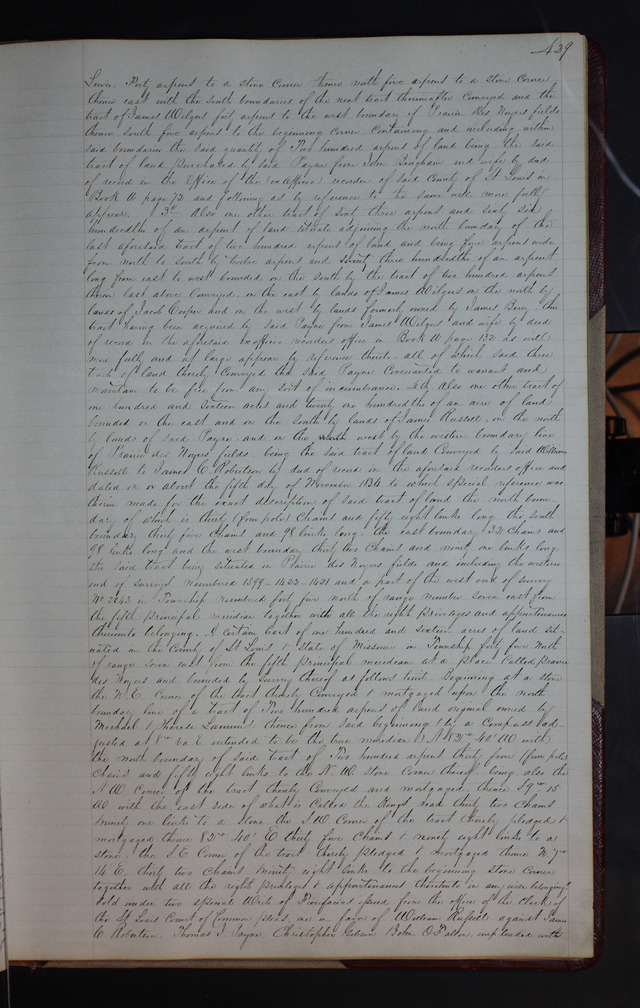 439
Lewis. Forty arpens to a stone Corner thence north five arpens to a stone Corner
thence east with the south boundaries of the next tract thereafter Conveyed and the
tract of James Wilgus fort arpens to the west boundary of Prairie Des Noyers fields
thence south five arpens to the beginning corner Containing and including within
said boundaries the said quantity of Two hundred arpens of land being the said
tract of land purchased by said Payne from John Bingham and wife by deed
of record in the Office of the (ex officio) recorder of said County of St Louis in
Book U page 72 and following as by reference to the same will more fully
appear. 3d Also one other tract of sixty three arpens and sixty six
hundredths of an arpent of land situate adjoining the north boundary of the
last aforesaid tract of two hundred arpens of land and being five arpens wide
from north to south by twelve arpens and seventy three hundredths of an arpent
long from east to west bounded on the south by the tract of two hundred arpens
therein last above Conveyed on the east by lands of James Wilgus on the north by
lands of Jacob Cooper and on the west by lands formerly owned by James Bery, this
tract having been acquired by said Payne from James Wilgus and wife by deed
of record in the aforesaid ex officio recorders office in Book U page 132 as will
more fully and at large appear by reference thereto. all of which said three
tracts of land thereby Conveyed the said Payne Covenanted to warant and
maintain to be free from any sort of incumbrance. 4th Also one other tract of
one hundred and sixteen acres and twenty one hundredths of an acre of land
bounded on the east and on the south by lands of James Russell. on the north
by lands of said Payne and on the west by the western boundary line
of Prairie des Noyers fields. being the said tract of land Conveyed by said William
Russell to James C Robertson by deed of record in the aforesaid recorders office and
dated on or about the fifth day of November 1834 to which special reference was
therein made for the exact description of said tract of land the north boun-
dary of which is thirty (four pole) Chains and fifty eight links long the south
boundary thirty five Chains and 98 links long. the east boundary (32) Chains and
98 links long and the west boundary thirty two Chains and ninety one links long
the said tract being situated in Prairie des Noyers fields and including the western
end of surveys numbered 1399-1422-1421 and a part of the west end of survey
No 2643 in Township numbered forty five north of range number seven east from
the fifth principal meridian together with all the right priviliges and appurtenances
thereunto belonging. A Certain tract of one hundred and sixteen acres of land sit-
uated in the County of St Louis & State of Missouri in Township forty five North
of range seven east from the fifth principal meridian at a place Called prairie
des Noyers and bounded by survey thereof as follows to wit. Beginning at a stone
the N. E. Corner of the tract thereby Conveyed & mortgaged upon the north
boundary line of a tract of Two hundred arpens of land original owned by
Michael & Therese Lammi thence from said beginning (by a Compass ad-
justed at E. intended to be the true meridian) N 82 40' W with
the north boundary of said tract of Two hundred arpens thirty four (four pole)
Chains and fifty eight links to the N. W. stone Corner thereof being also the
N W Corner of the tract thereby Conveyed and mortgaged. thence S 9 15
W with the east side of what is Called the Kings road thirty two Chains
ninety one links to a stone the S W Corner of the tract thereby pledged &
mortgaged thence 82 40' E thirty five Chains & ninety eight links to a
stone, the S E Corner of the tract thereby pledged & mortgaged thence N. 7
14 E, thirty two Chains ninety eight links to the beginning stone Corner
together with all the right privileges & appurtenances thereunto in any wise belonging
Sold under two special Writs of Fierifacias issued from the office of the Clerk of
the St Louis Court of Common pleas, one in favor of William Russell against James
C Robertson, Thomas J. Payne Christopher Gibson John O'Fallon, impleaded with